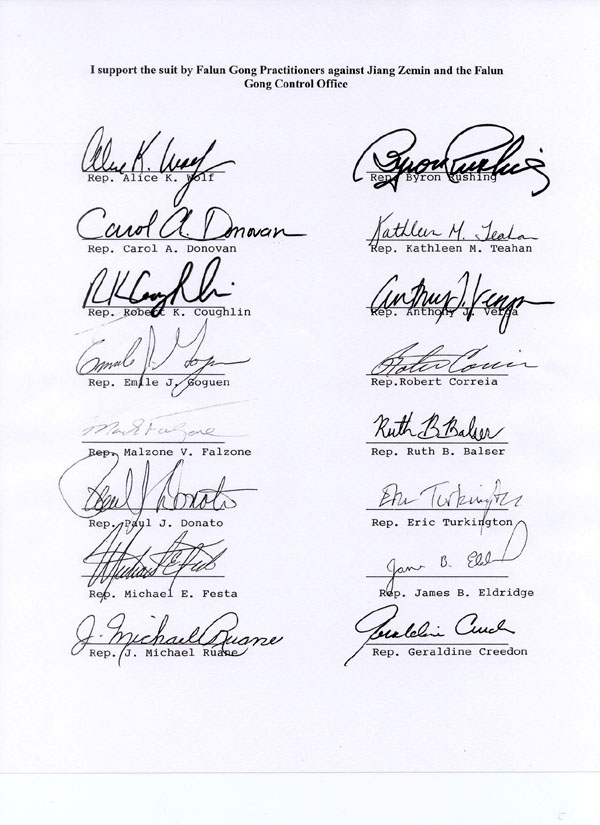 I support the suit by Falun Gong Practitioners against Jiang Zemin and the Falun
Gong Control Office
Alice K. Wolf
Rep. Alice K. Wolf
Byron Rushing
Rep. Byron Rushing
Carol A. Donovan
Rep. Carol A. Donovan
Kathleen M. Teahan
Rep. Kathleen M. Teahan
RK Coughlin
Rep. Robert K. Coughlin
Anthony J. Verga
Rep. Anthony J. Verga
Emile J. Goguen
Rep. Emile J. Goguen
Robert Correia
Rep.Robert Correia
Mark Falzone
Rep. Malzone V. Falzone
Ruth B. Balser
Rep. Ruth B. Balser
Paul J. Donato
Rep. Paul J. Donato
Eric Turkington
Rep. Eric Turkington
Michael E. Festa
Rep. Michael E. Festa
James B. Eldridge
Rep. James B. Eldridge
J. Michael Ruane
Rep. J. Michael Ruane
Geraldine Creedon
Rep. Geraldine Creedon